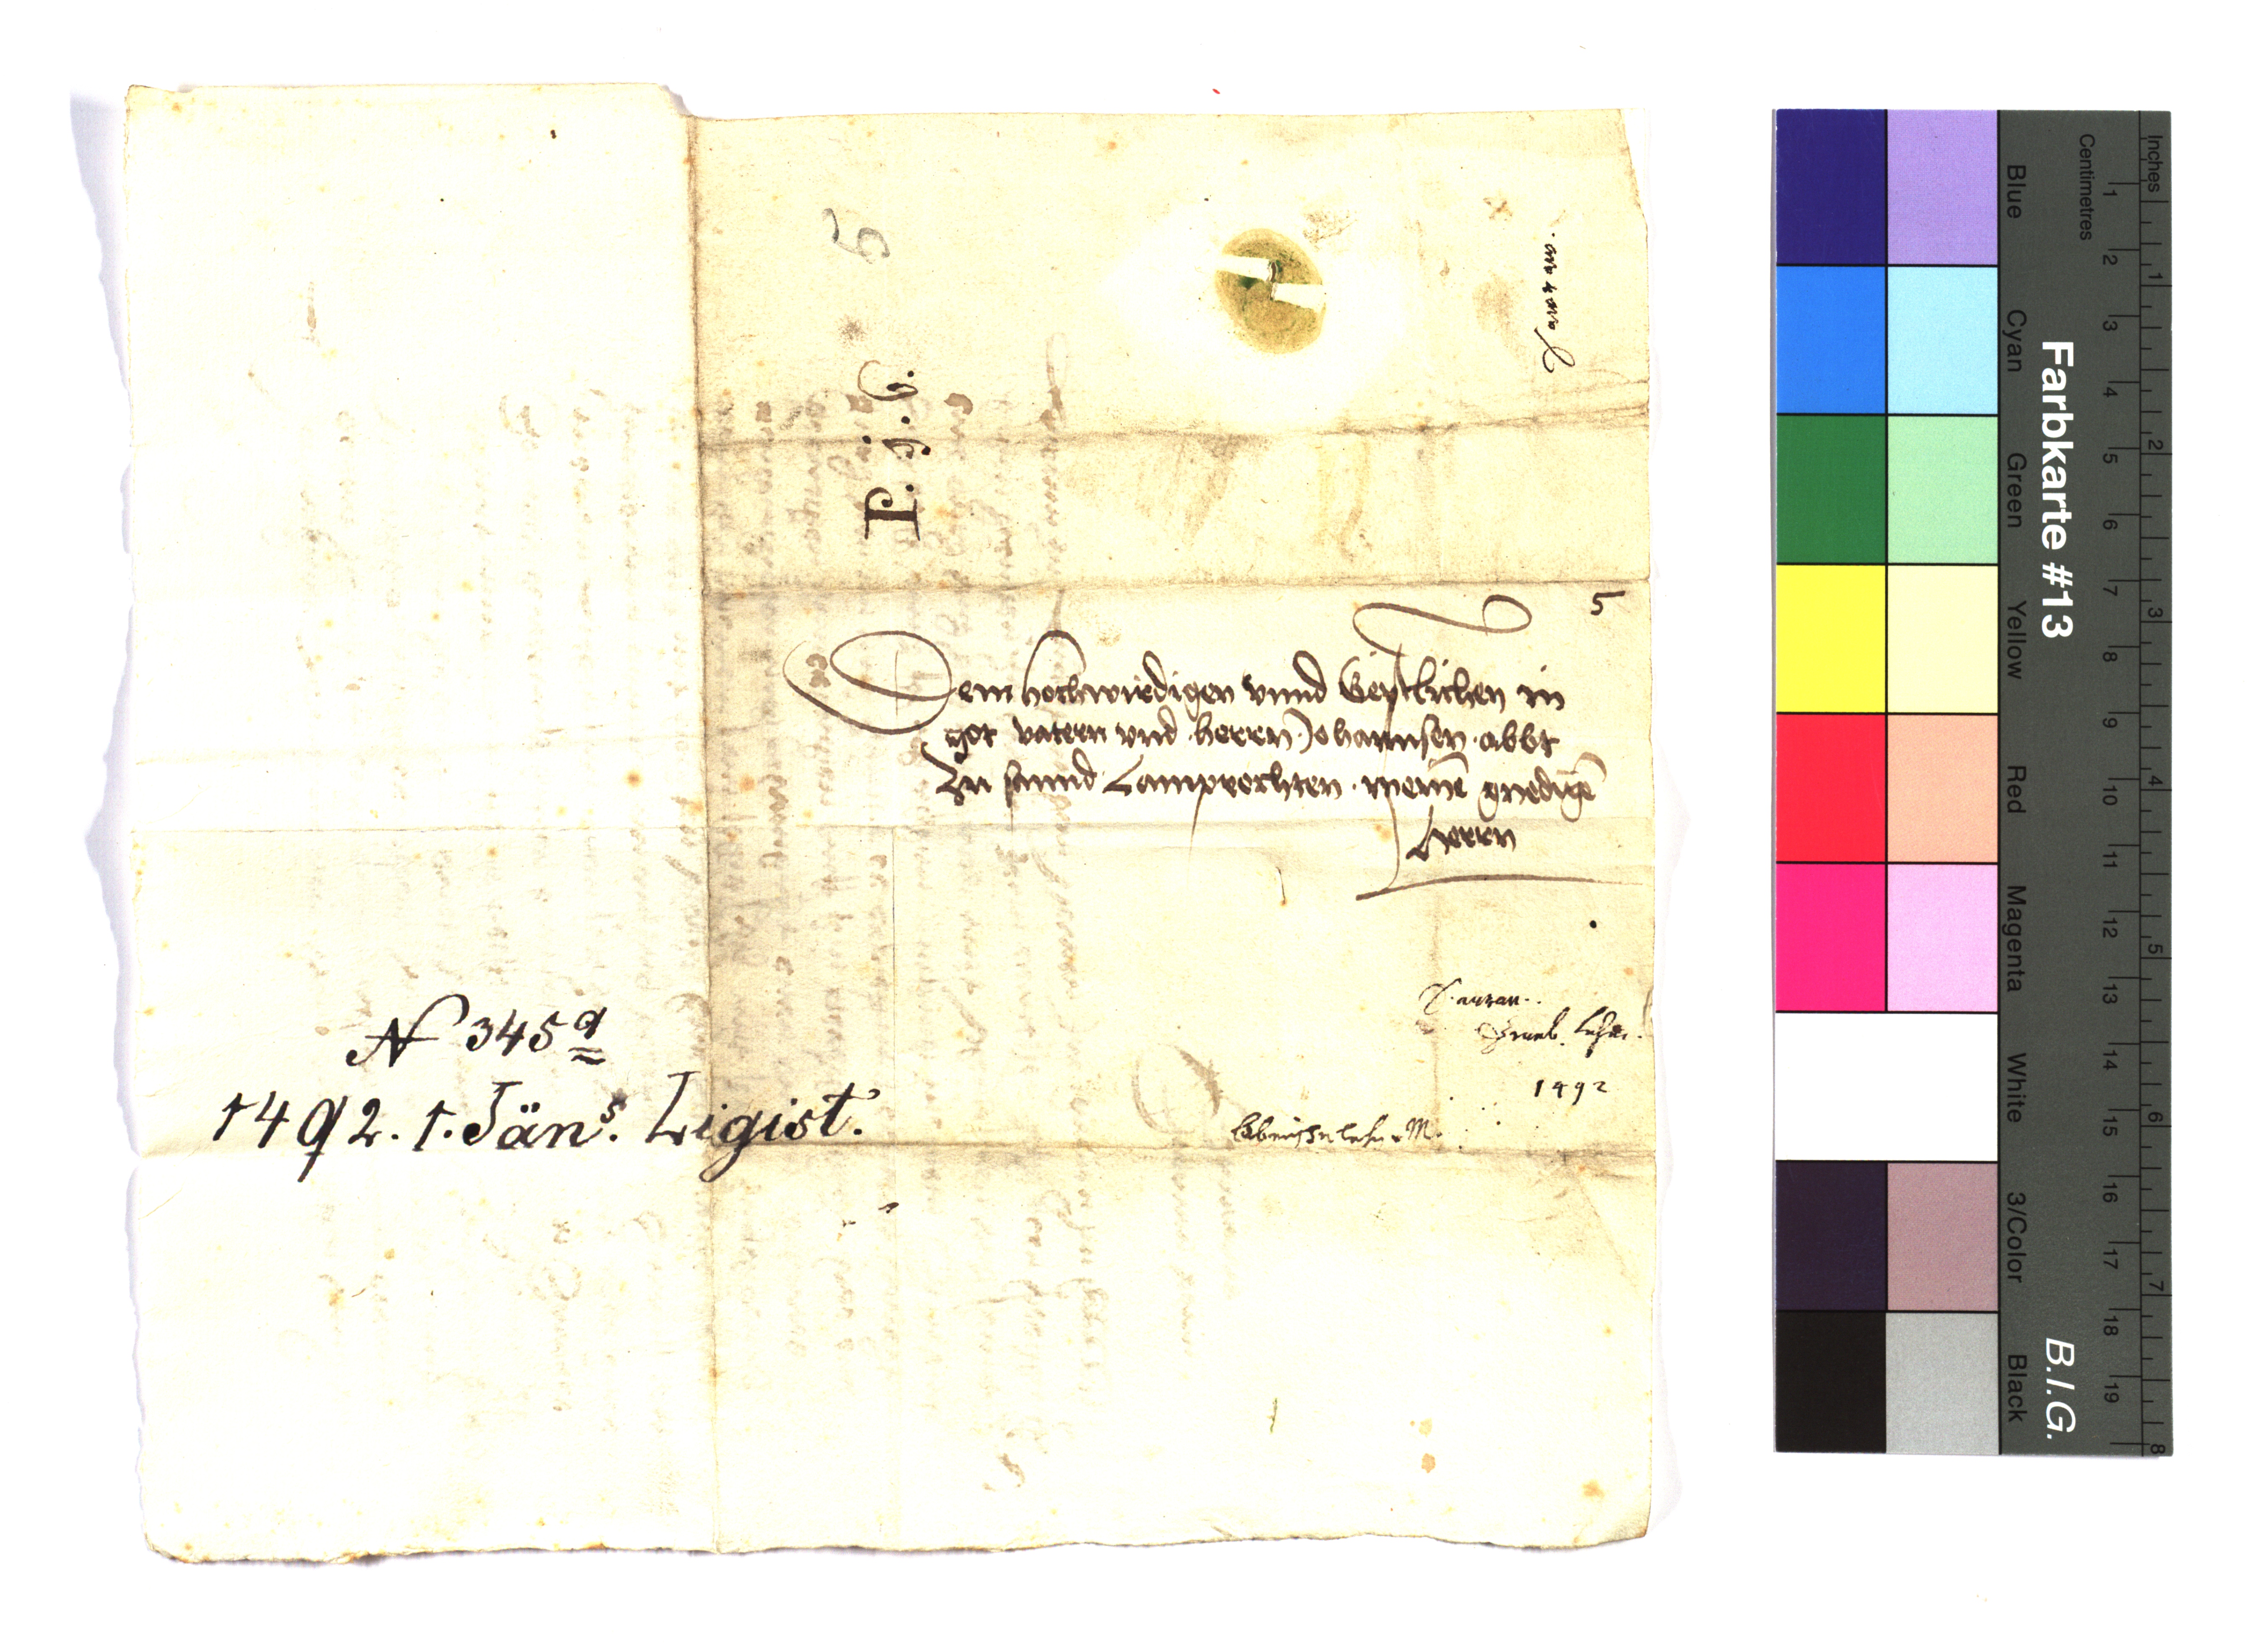 5
P. j. C.
5
Dem hochwirdigen vnnd Geystlichen in
got vatern vnd herrn Johannsen abbt
Zu sannd Lamprechten meinē gnedigē
herrn
Sauran.
lehen.
1492
N 345 a
1492. 1. Jän s. Ligist.
Farbkarte #13
B.I.G.
Inches 1 2 3 4 5 6 7 8
Centimetres 1 2 3 4 5 6 7 8 9 10 11 12 13 14 15 16 17 18 19
Blue
Cyan
Green
Yellow
Red
Magenta
White
3/Color
Black